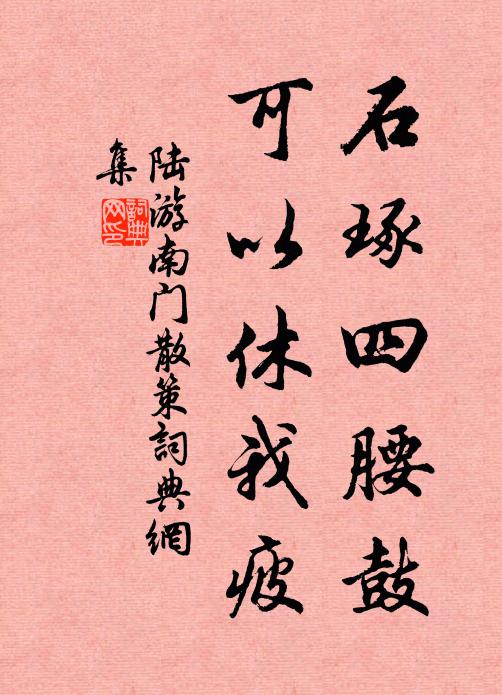 石琢四腰鼓
可以休我疲
陆游南门散策詞典網
集
詞典
网印